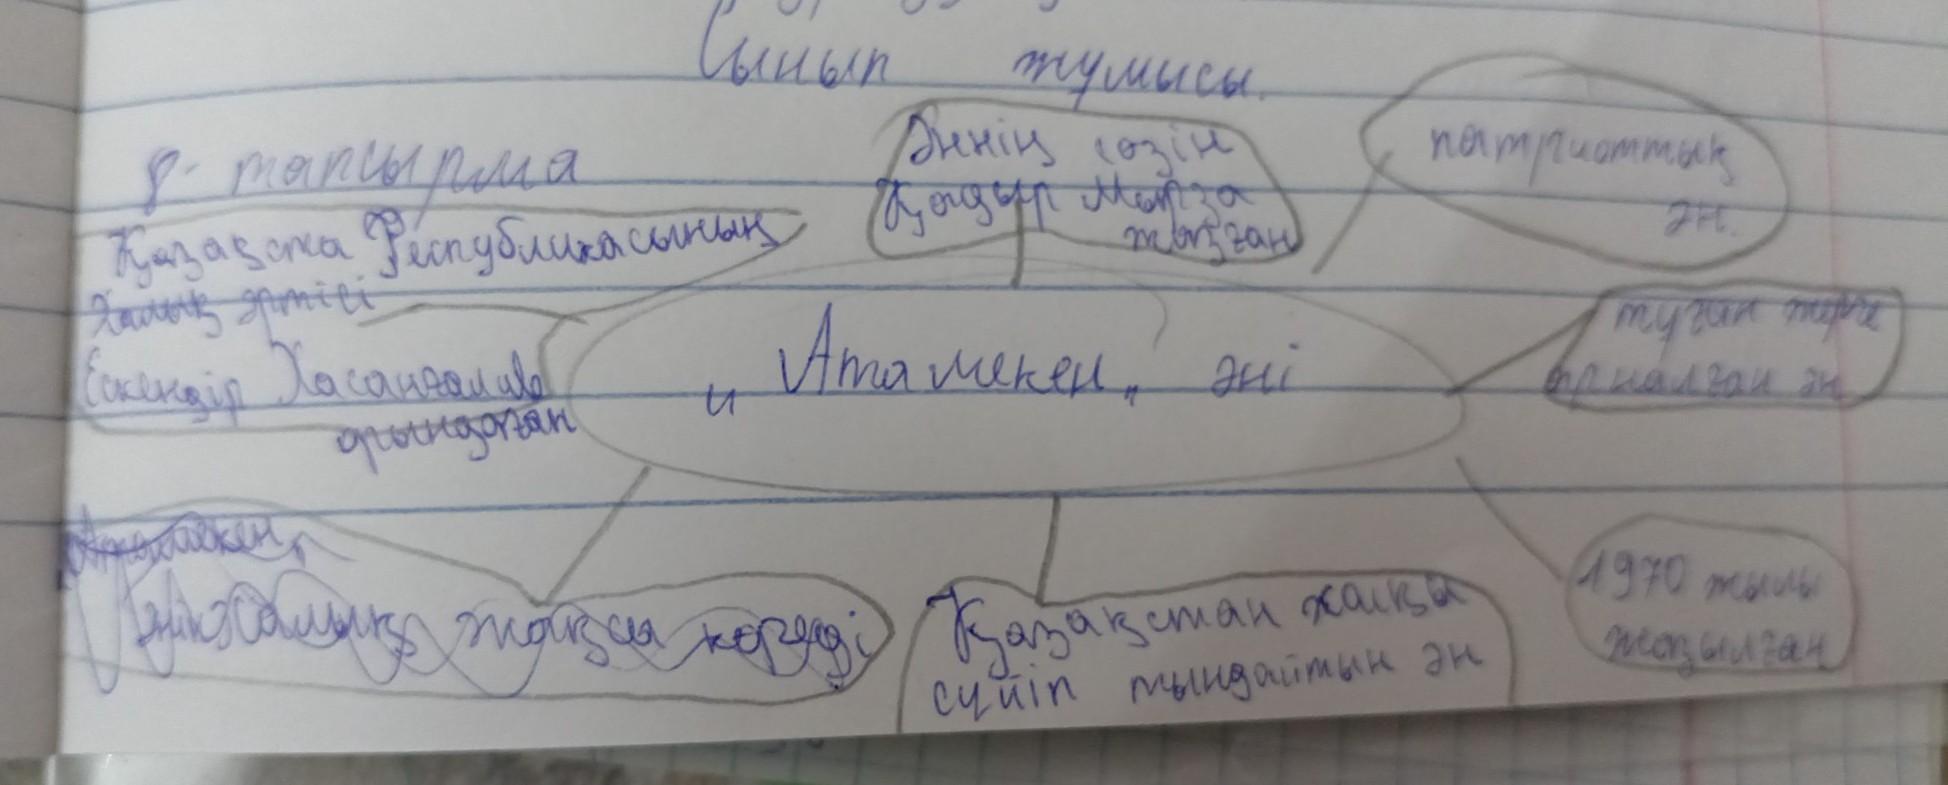 Сынып жұмысы.
8-тапсырма
Әннің сөзін
Қадыр Мырза
жазған
патриоттық
ән.
Қазақста Республикасының
Халық әртісі
Ескендір Хасанғалиев
орындаған
„Атамекен„ әні
туған жерге
арналған ән
Атамекен„
халық жақсы көреді
Қазақстан халқы
сүйіп тыңдайтын ән
1970 жылы
жазылған